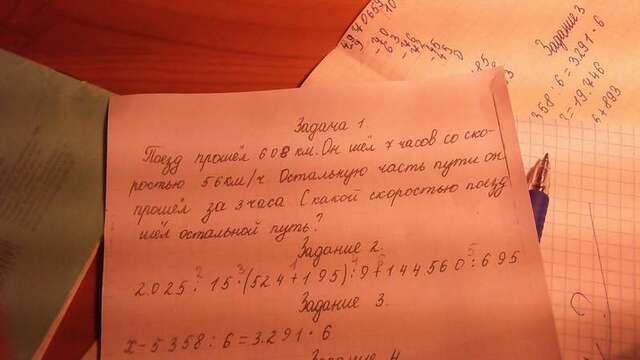 Задача 1
Поезд прошёл 608 км. Он шёл 7 часов со ско-
ростью 56 км/ч. Остальную часть пути он
прошёл за 3 часа. С какой скоростью поезд
шёл остальной путь?
Задание 2.
2025 : 15 · (524 + 195) : 9 + 144560 : 695
Задание 3.
x - 5358 : 6 = 3291 · 6
Задание 4
Задание 3
358 : 6 = 3291 · 6
= 19.746
+ 893